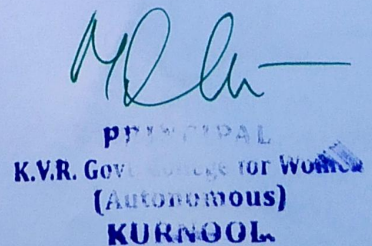 PRINCIPAL
K.V.R. Gov College for Women
(Autonomous)
KURNOOL